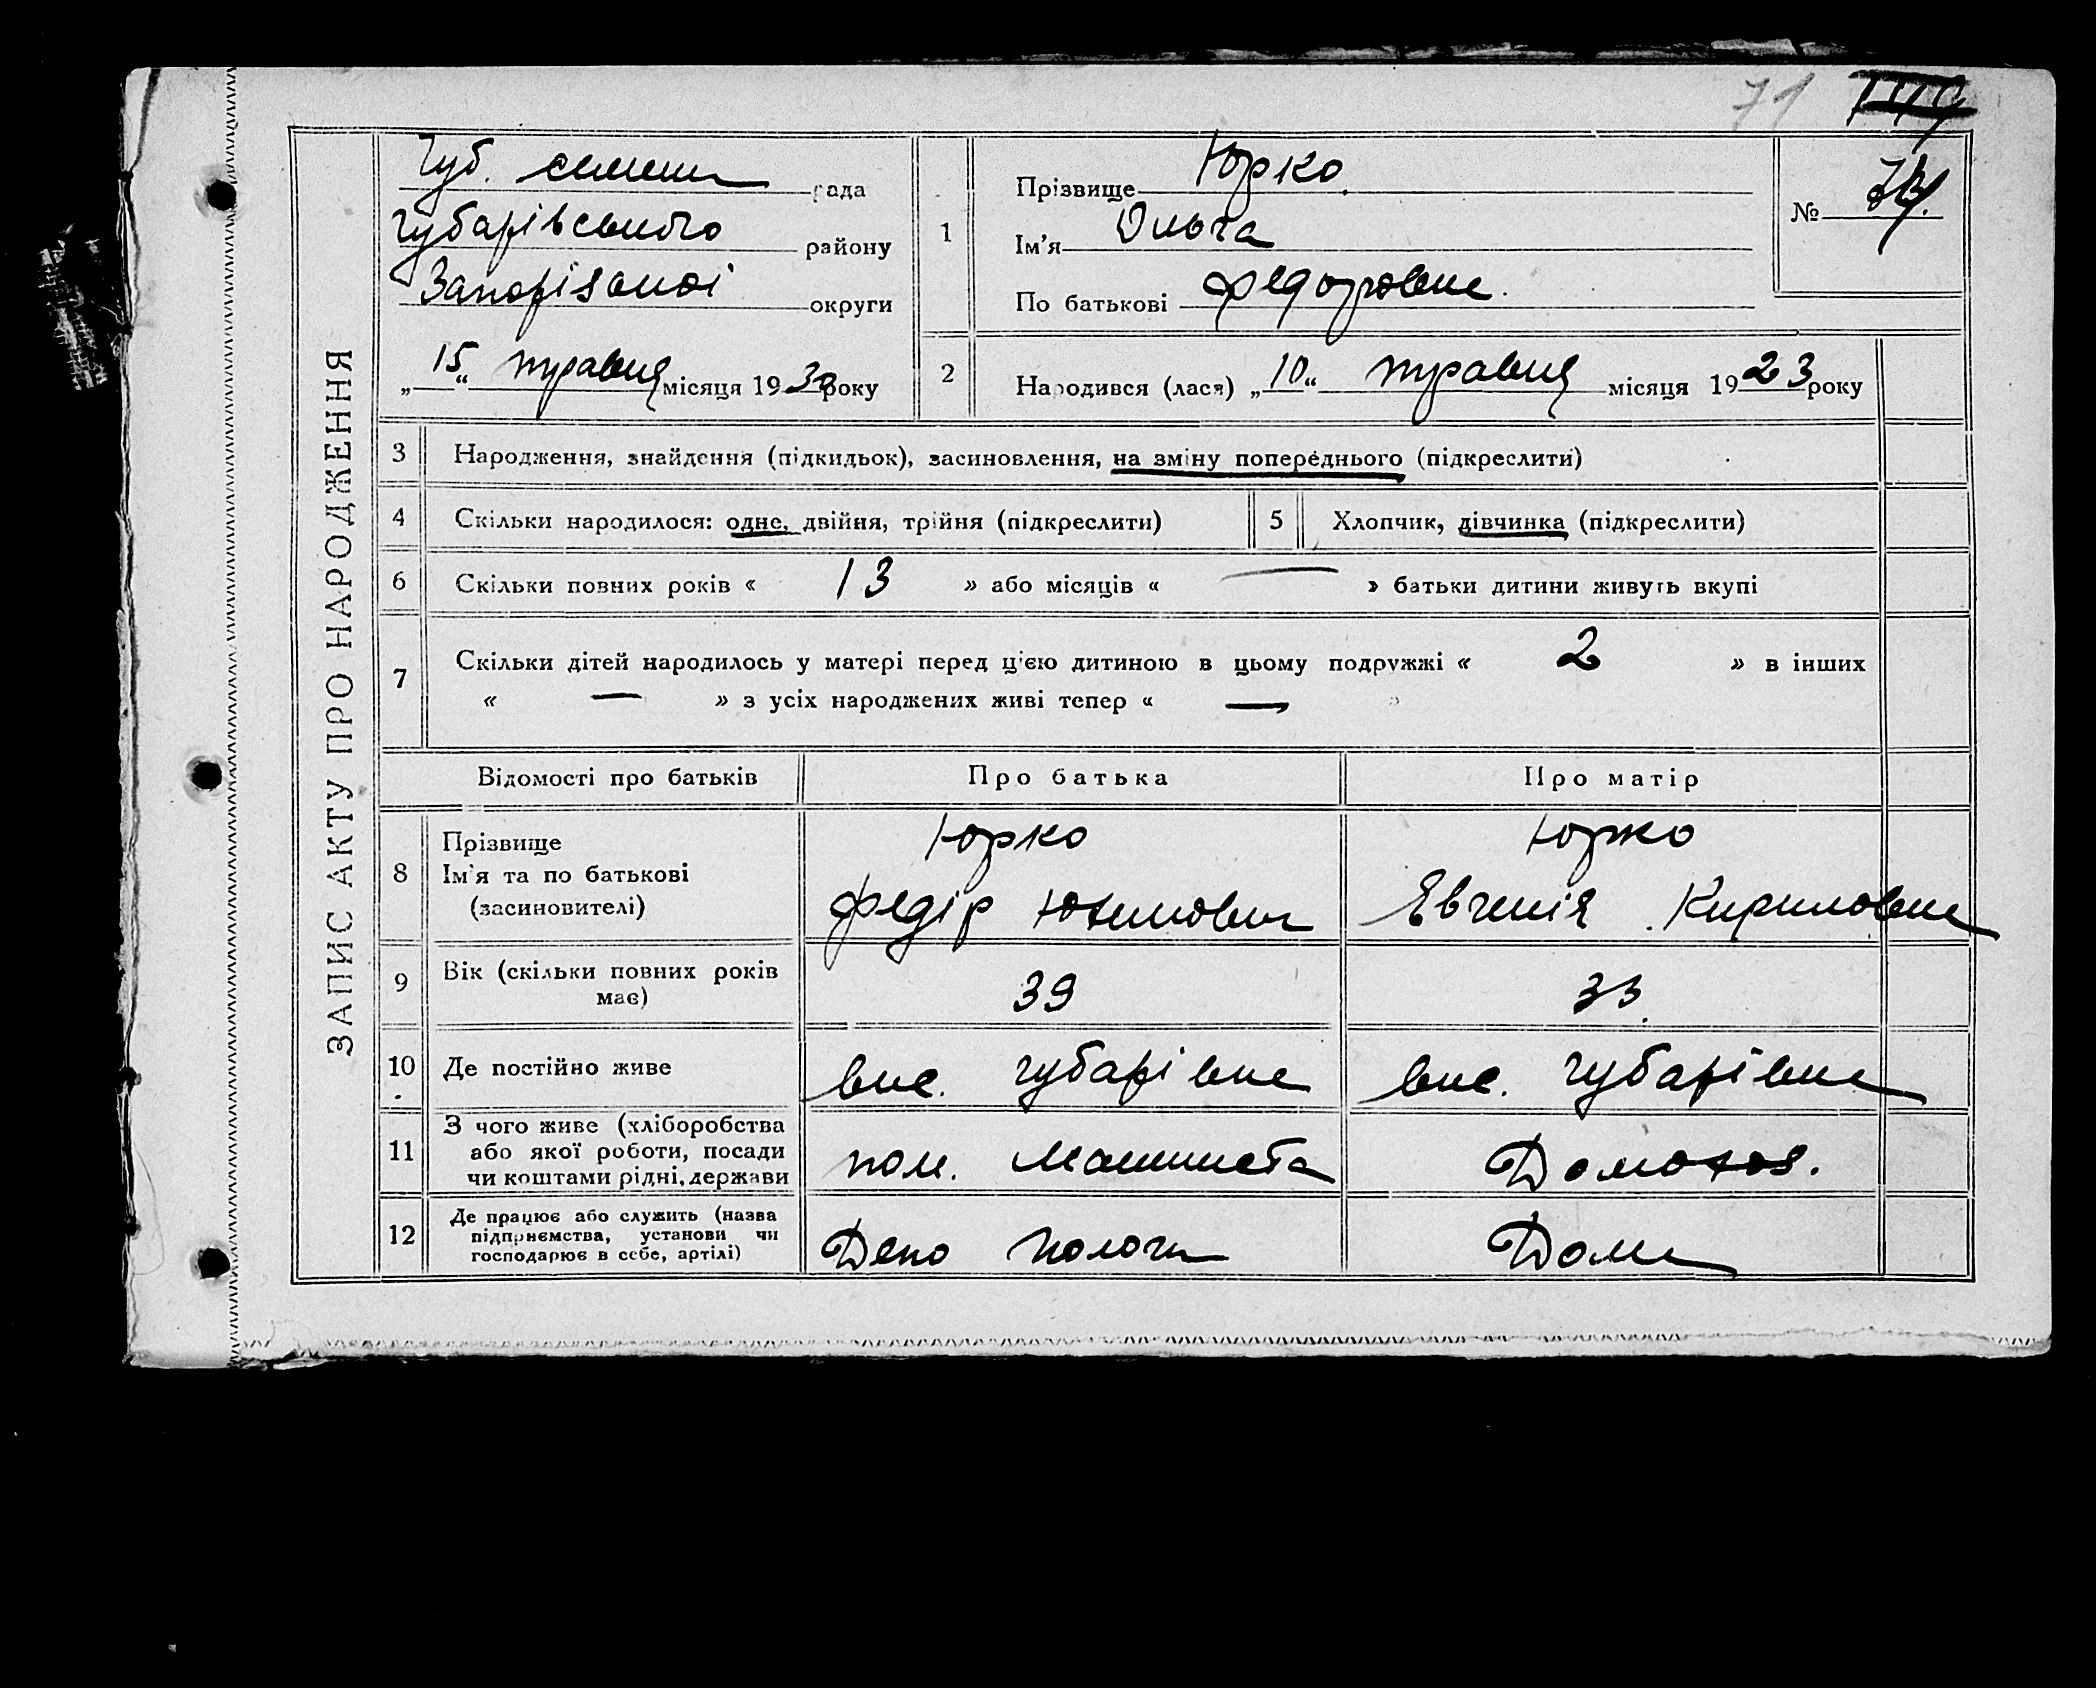 71
Губ. селищн рада
Губарівського району
Запорізької округи
„15“ травня місяця 1930 року
ЗАПИС АКТУ ПРО НАРОДЖЕННЯ
1
Прізвище Юрко
Ім'я Ольга
По батькові Федоровна
№
2
Народився (лася) „10“ травня місяця 1923 року
3 Народження, знайдення (підкидьок), засиновлення, на зміну попереднього (підкреслити)
4 Скільки народилося: одне, двійня, трійня (підкреслити)
5 Хлопчик, дівчинка (підкреслити)
6 Скільки повних років « 13 » або місяців « — » батьки дитини живуть вкупі
7 Скільки дітей народилось у матері перед цією дитиною в цьому подружжі « 2 » в інших
« — » з усіх народжених живі тепер « — »
Відомості про батьків Про батька Про матір
8 Прізвище
Ім'я та по батькові
(засиновителі)
Юрко
Федір Юхимович
Юрко
Евгенія Кириловна
9 Вік (скільки повних років
має)
39
33
10 Де постійно живе
вис. Губарівка
вис. Губарівка
11 З чого живе (хліборобства
або якої роботи, посади
чи коштами рідні, держави
пом. Машиниста
Домогос.
12 Де працює або служить (назва
підприємства, установи чи
господарює в себе, артілі)
Депо Пологи
Дома